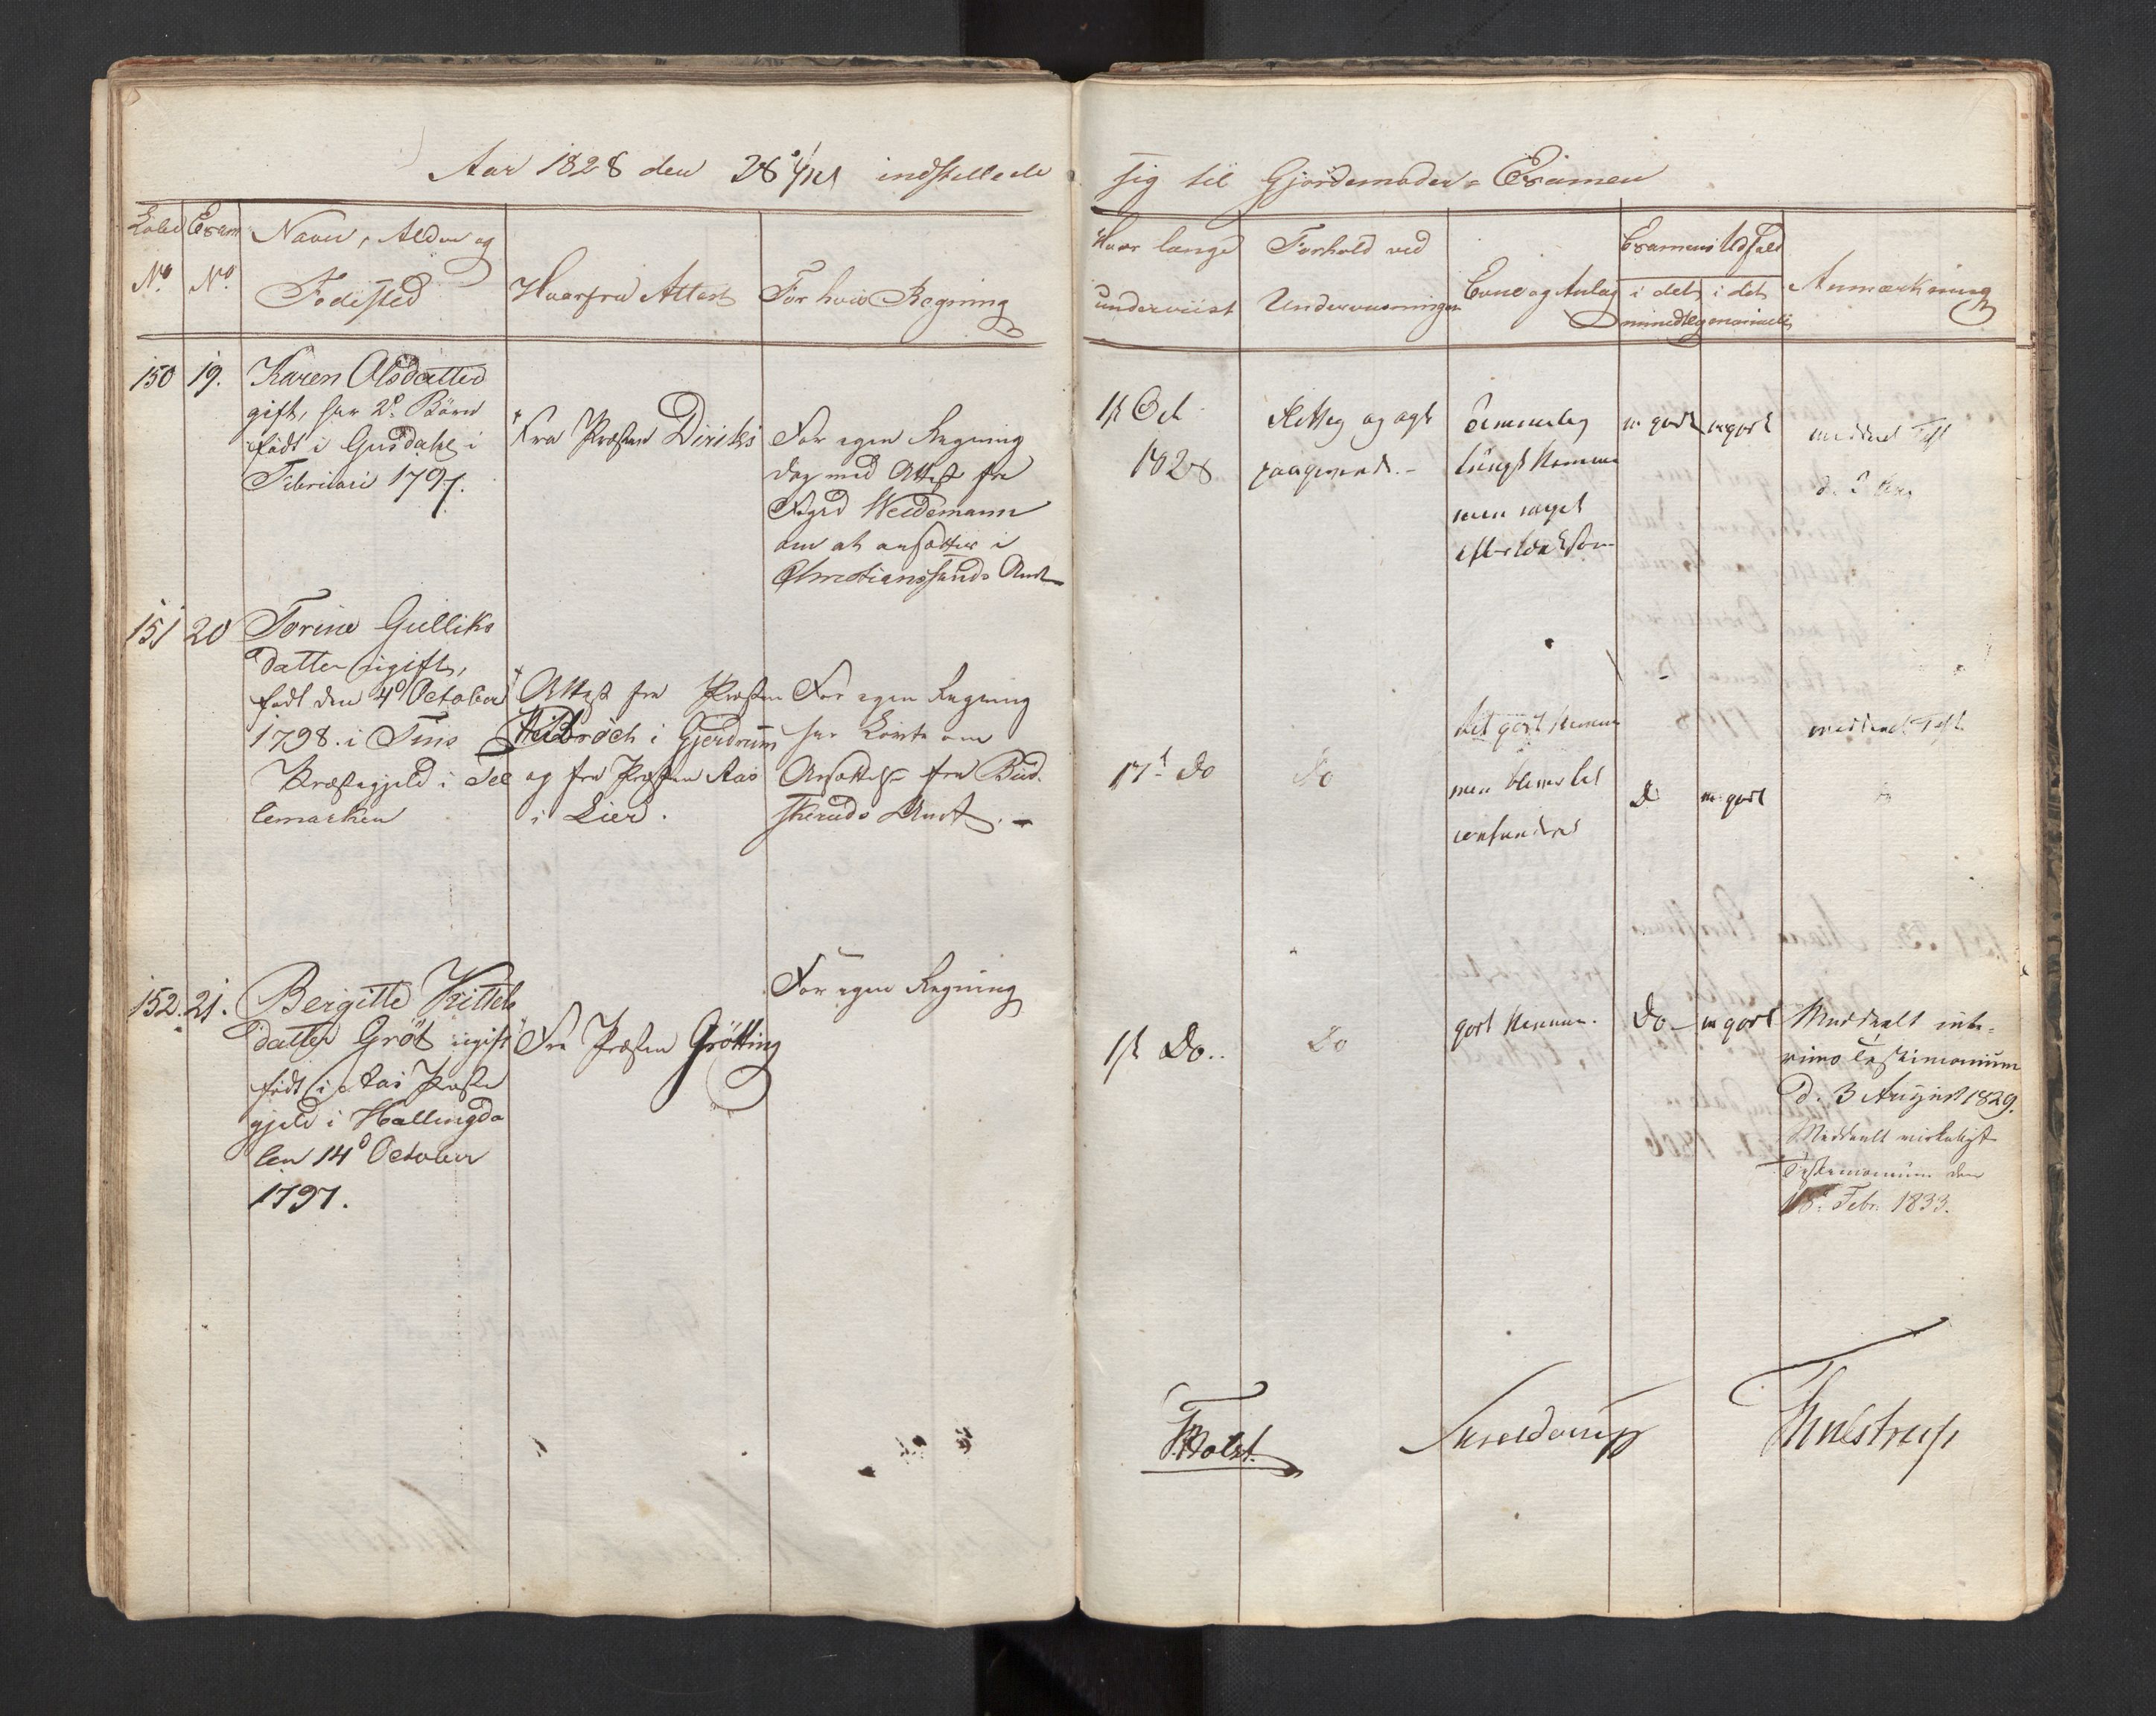 Aar 1828 den indstillede
sig til Gjordemoder-Examen
Löbe Exam
No. No.
Navn, Alder og
Fodested
Hvorfra Attest
For hvis Regning
Hvor længe
underviist
Forhold ved
Underviisningen
Evne og Anlag
Examens Udfald
i det mundtlig
i det manuelle
Anmærkning
150 19. Karen Olsdatter
gift, har 2de Börn
födt i Gusdahl i
Februari 1797.
Fra Præsten Diriks
For egen Regning
dog med Attest fra
Fogd Weidemann
om at ansættes i
Christianssands Amt
1st Oct
1828
Flittig og agt
paagivende.
Temmelig
men noget
m godt
m godt
meddeelt Test
151 20 Torine Gulliks
datter ugift,
födt den 4de October
1798. i Tins
Præstegjeld i Tel
lemarken
Attest fra Præsten
Heltbröch i Gjerdrum
og fra Præsten Aas
i Lier.
For egen Regning
har Löfte om
Ansættelse fra Bud-
skeruds Amt.
17d Do
Do
men bliver let
confunderet
D
m godt
meddeelt Test
152. 21. Bergitte Kittels
datter Gröt ugift
födt i Aas Præste
gjeld i Hallingda
len 14de October
1797.
Fra Præsten Grötting
For egen Regning
1st Do..
Do
godt Nemme.
Do
m godt
Meddeelt inte-
rims Testimonium
d. 3 August 1829.
Meddeelt virkeligt
Testimonium den
18d Febr. 1833.
Holst.
Skjelderup
Thulstrup